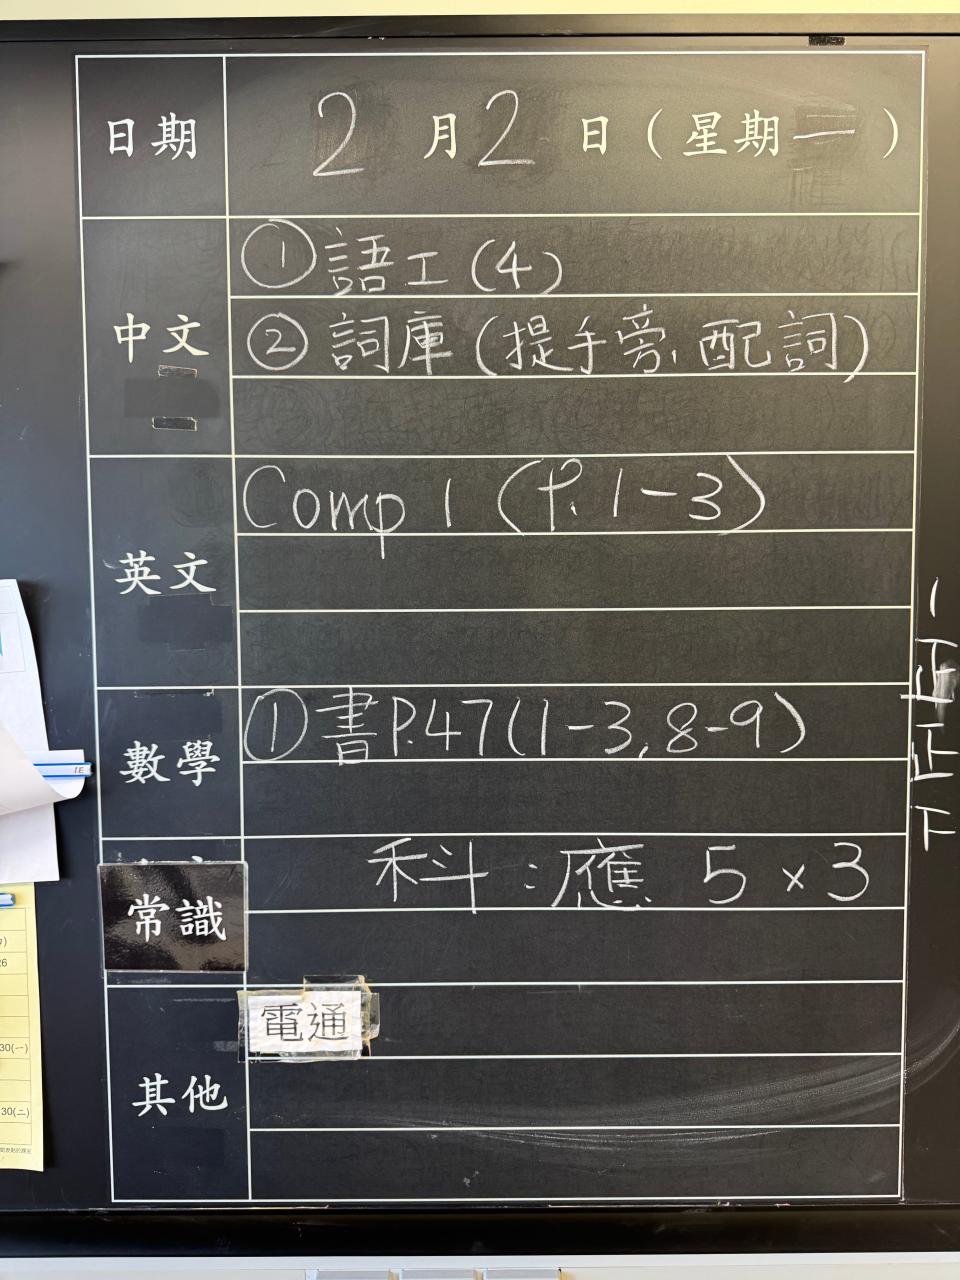 日期 2月2日(星期一)
中文
①語工(4)
②詞庫(提手旁、配詞)
英文
Comp 1 (P. 1-3)
數學
①書P.47(1-3, 8-9)
常識
科:應 5×3
其他
電通
正
正
下
1E
26
30(一)
30(二)